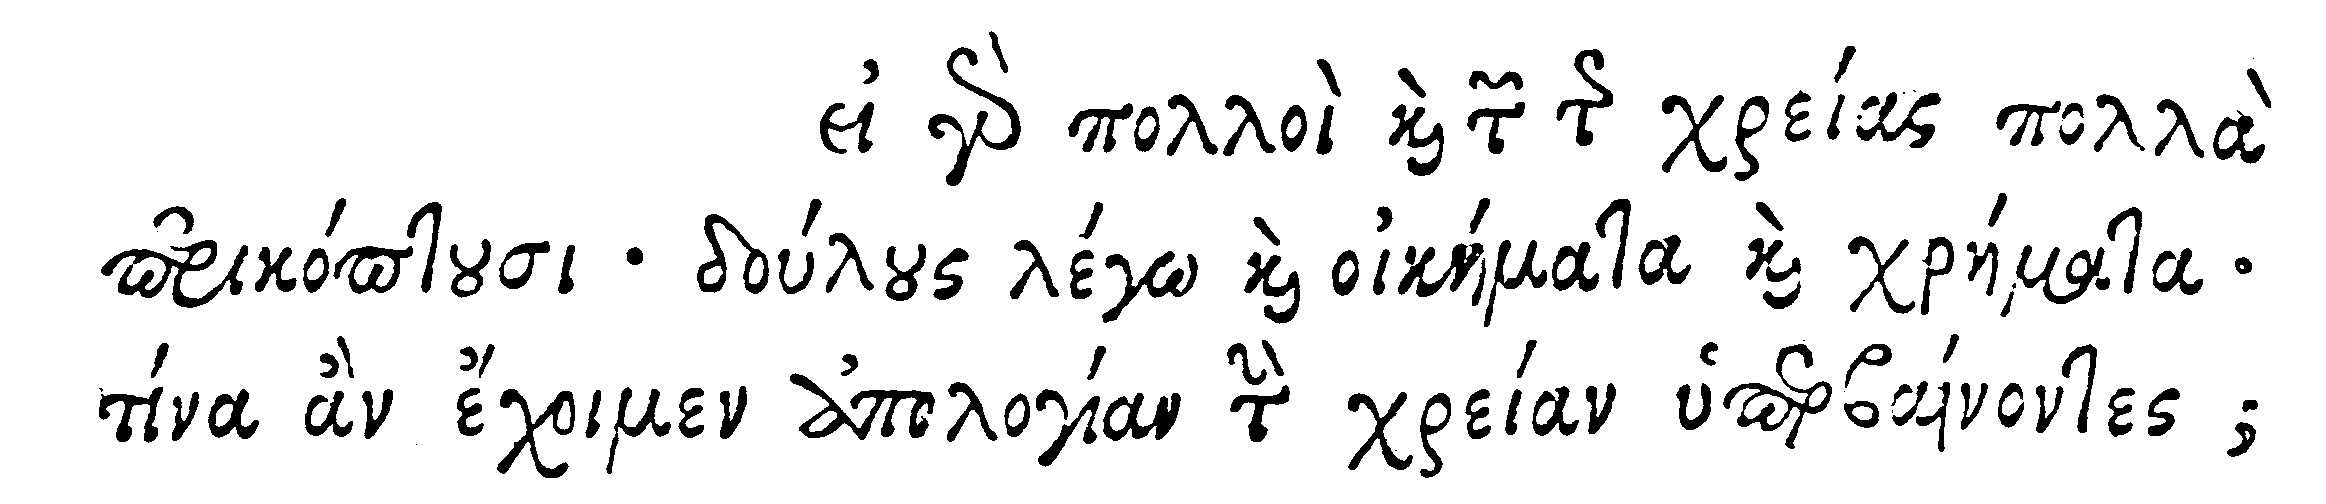 εἰ γὰρ πολλοὶ καὶ τῶν τῆς χρείας πολλὰ
περικόπτουσι · δούλους λέγω καὶ οἰκήματα καὶ χρήματα ·
τίνα ἂν ἔχοιμεν ἀπολογίαν τὴν χρείαν ὑπερβαίνοντες ;